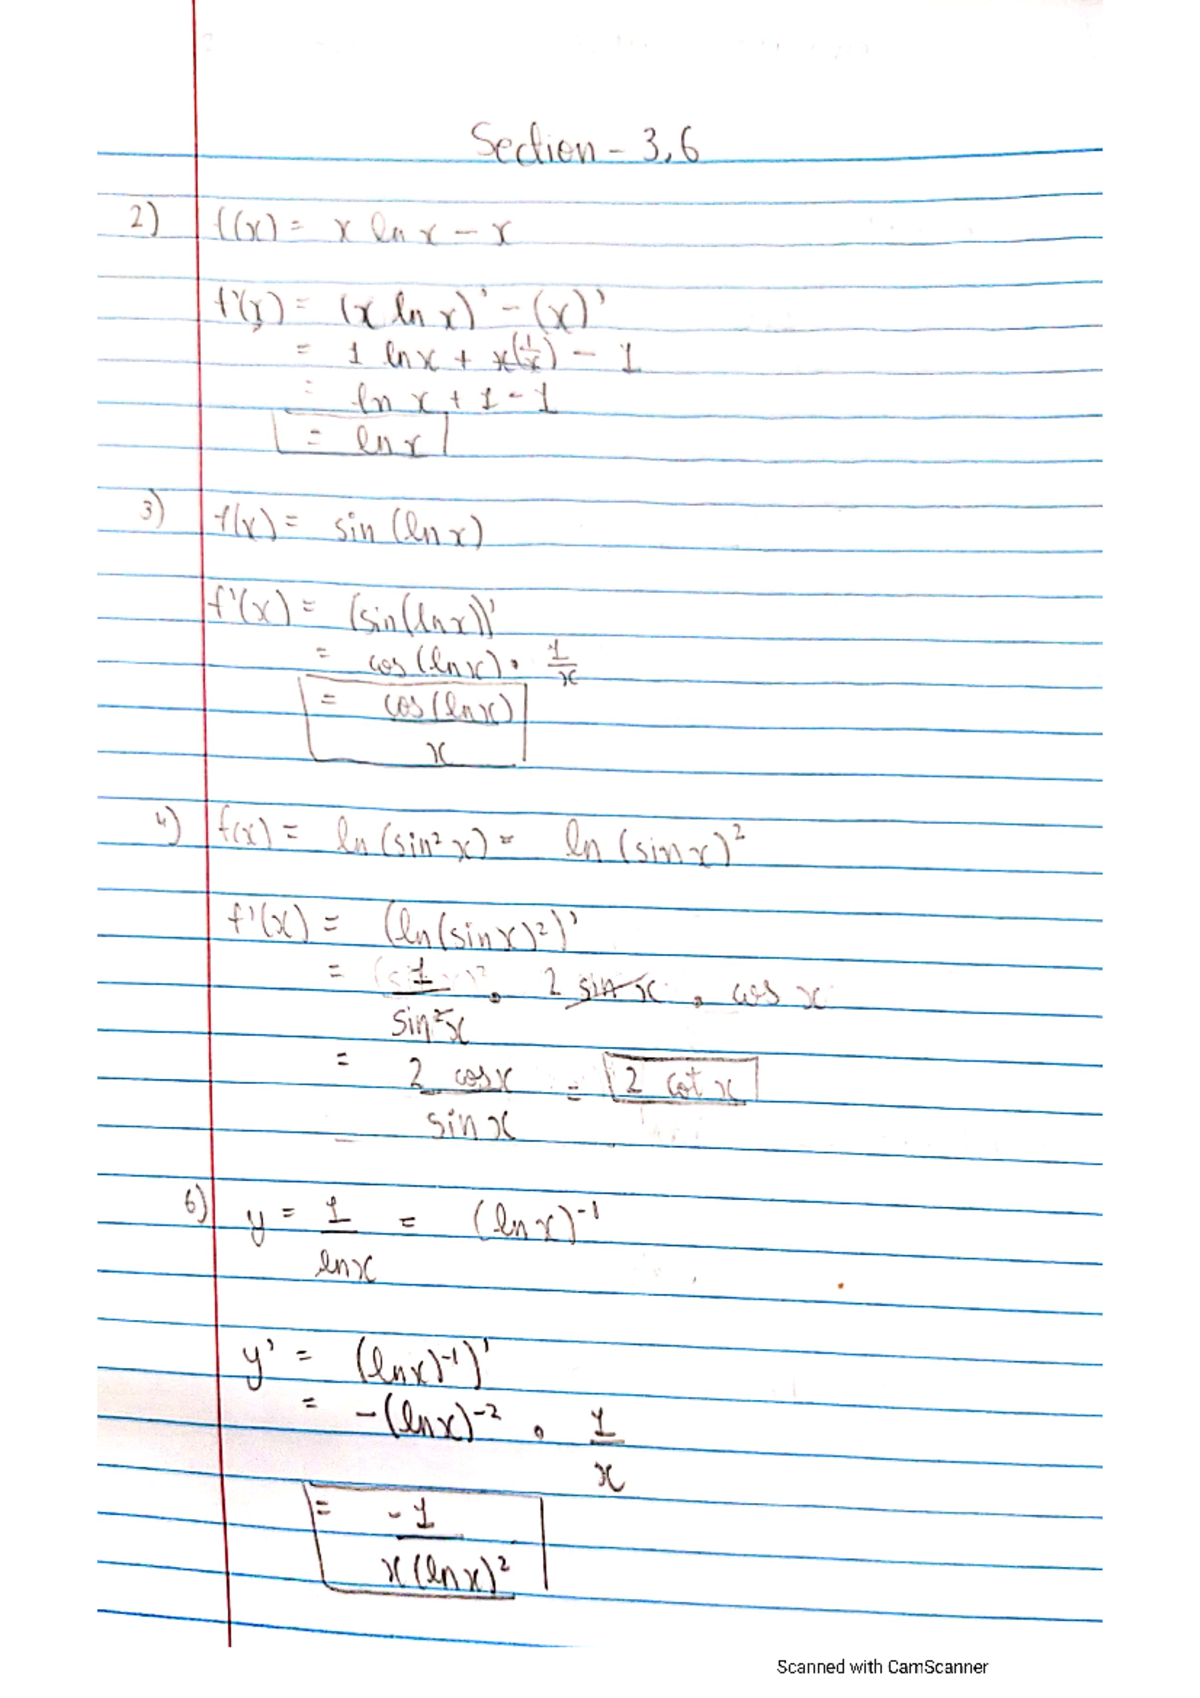 Section - 3.6
2) f(x) = x ln x - x
f'(x) = (x ln x)' - (x)'
= 1 ln x + x(1/x) - 1
= ln x + 1 - 1
= ln x
3) f(x) = sin (ln x)
f'(x) = (sin(ln x))'
= cos (ln x) • 1/x
= cos (ln x) / x
4) f(x) = ln (sin² x) = ln (sin x)²
f'(x) = (ln (sin x)²)'
= 1/sin² x • 2 sin x • cos x
= 2 cos x / sin x = 2 cot x
6) y = 1/ln x = (ln x)⁻¹
y' = (ln x)⁻¹)'
= -(ln x)⁻² • 1/x
= -1 / x (ln x)²
Scanned with CamScanner